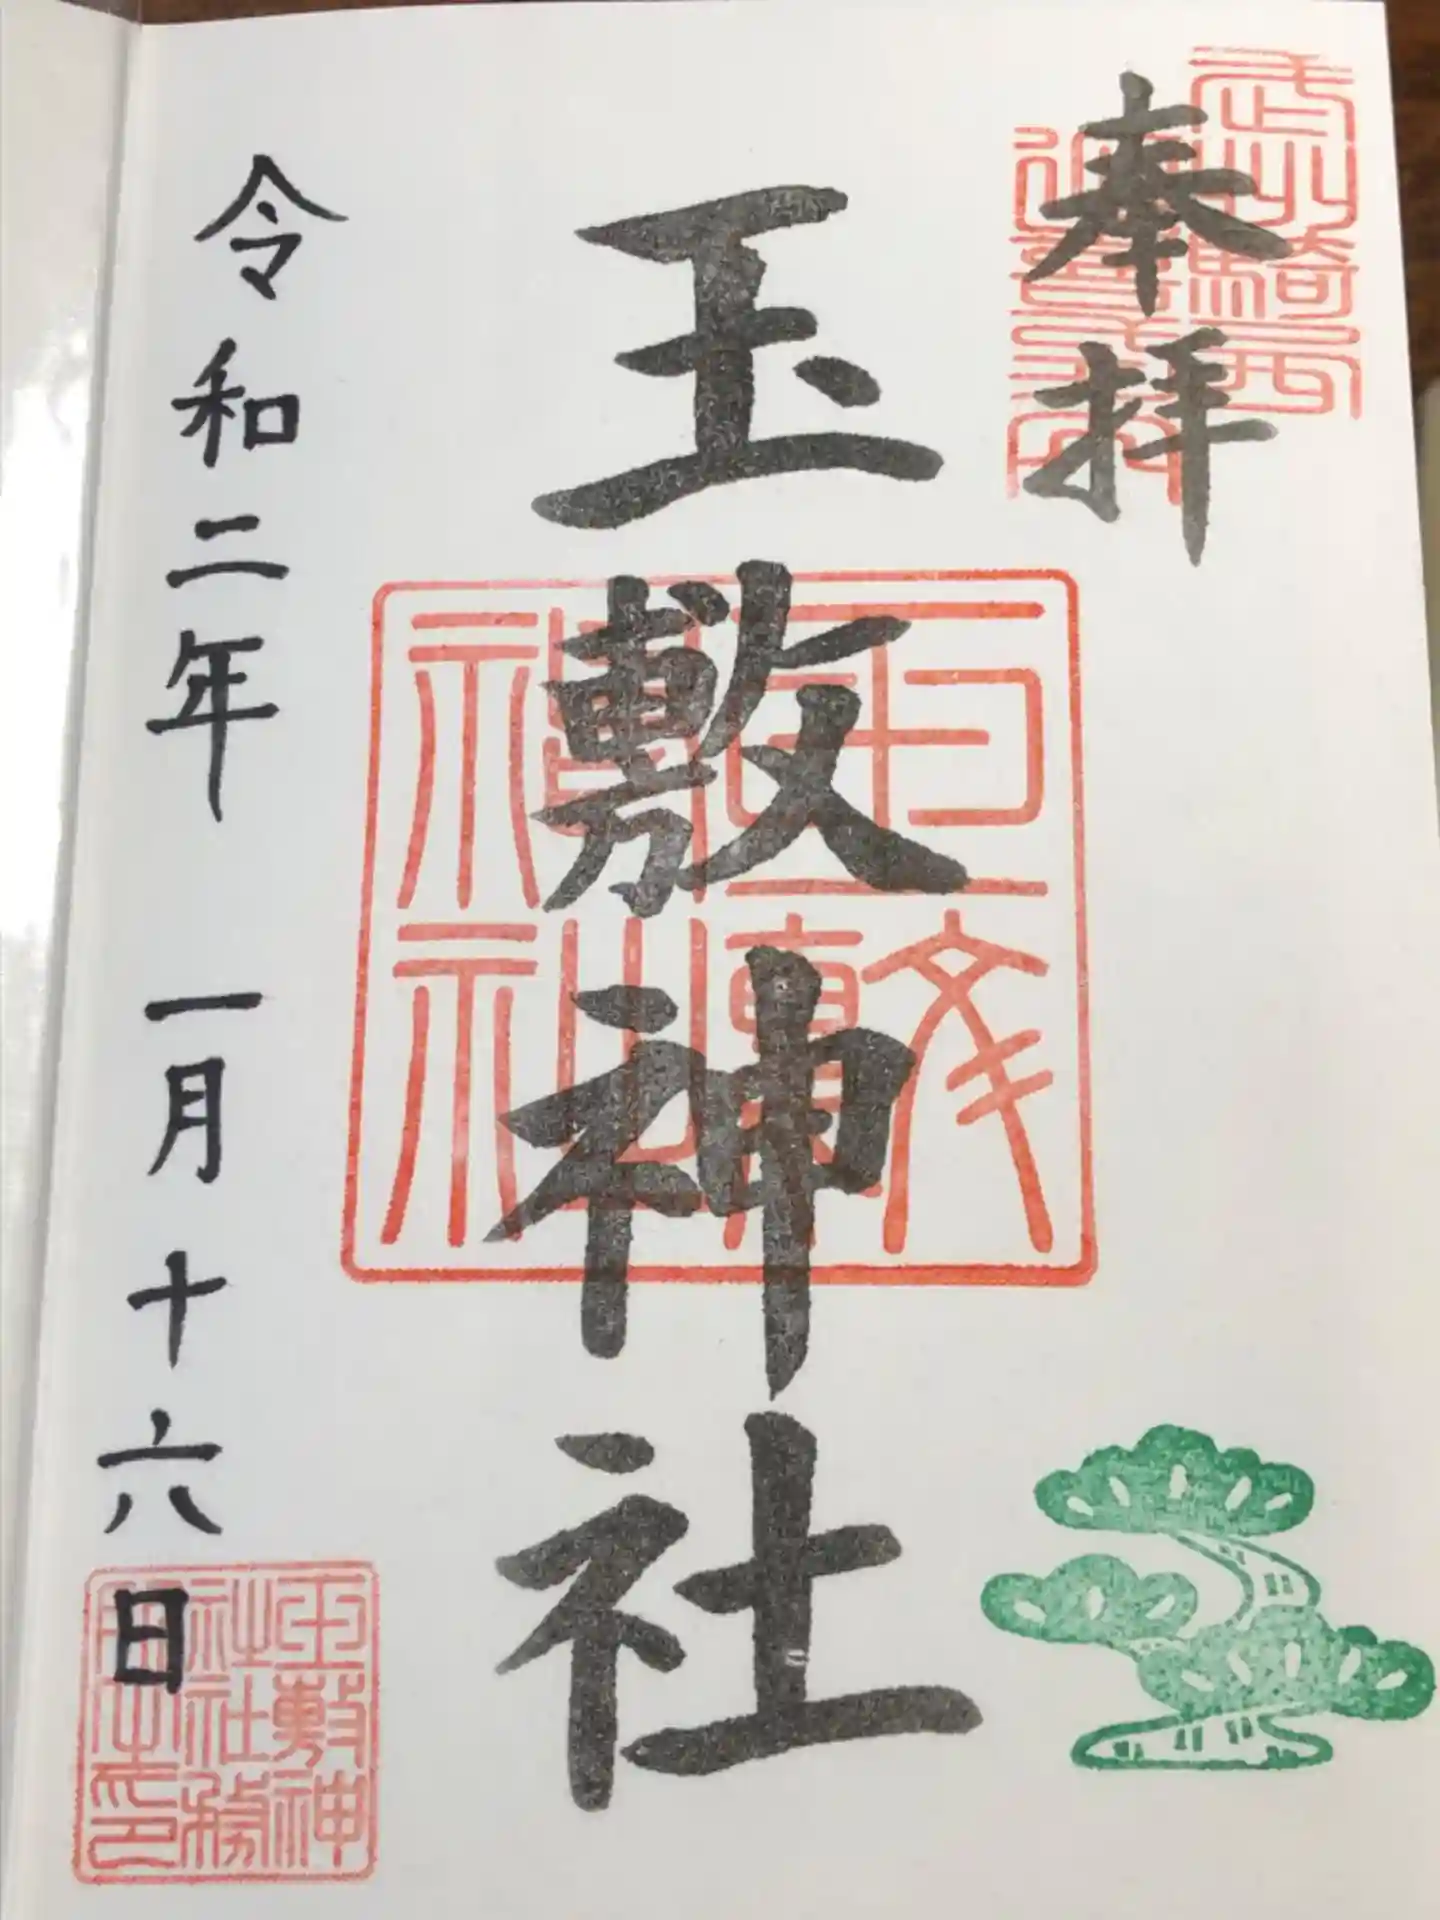 奉拝
玉敷神社
玉敷神社
令和二年 一月十六日
玉敷神社社務所之印